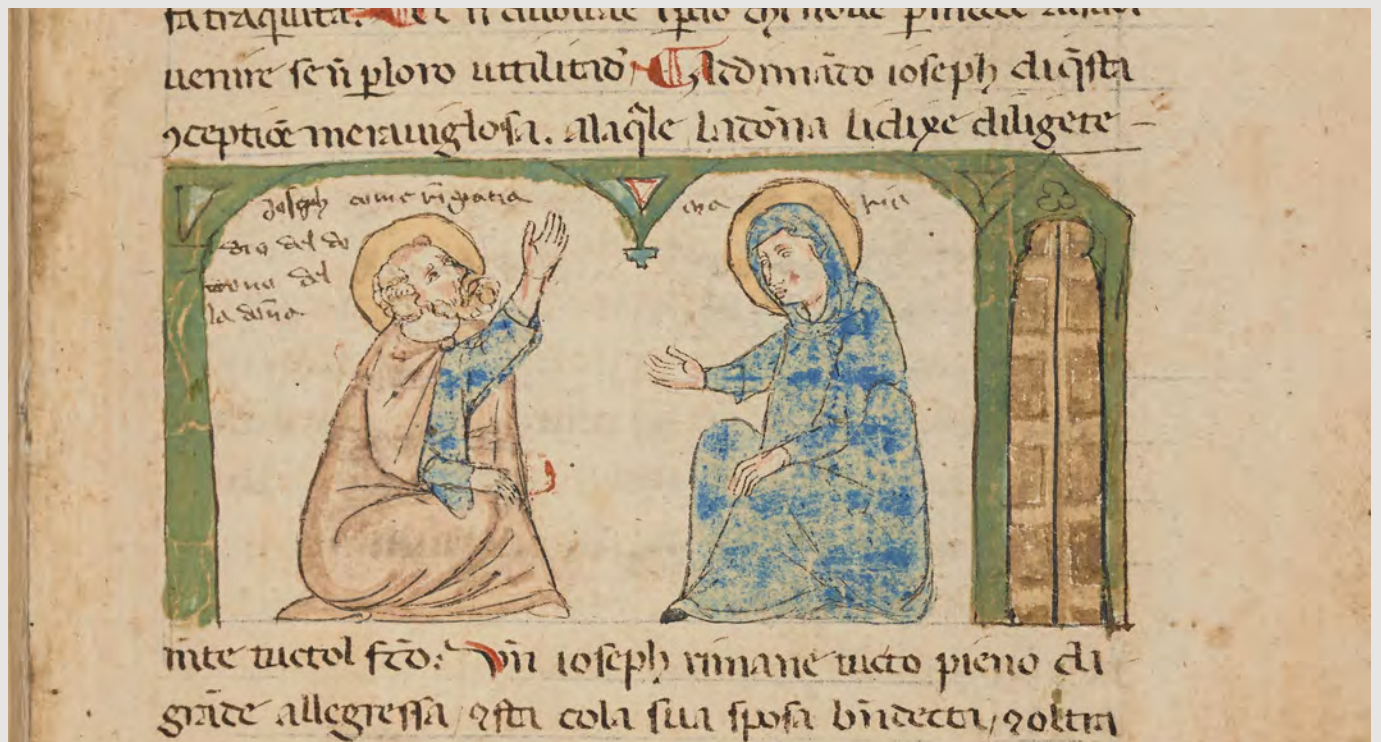 uenire se n̄ ꝑloro uttilitad᷒ Adomādo ioseph diq̄sta
ꝯceptiōe merauiglosa. alaq̄le ladōna lidixe diligēte
Joseph come rīgratia
ma ria
dio del do
ono del
la dōna
m̄te tuctol fc̄o: Vn̄ ioseph rimane tucto pieno di
grāde allegressa, ꝯsta cola sua sposa bn̄decta, ꝯoltra